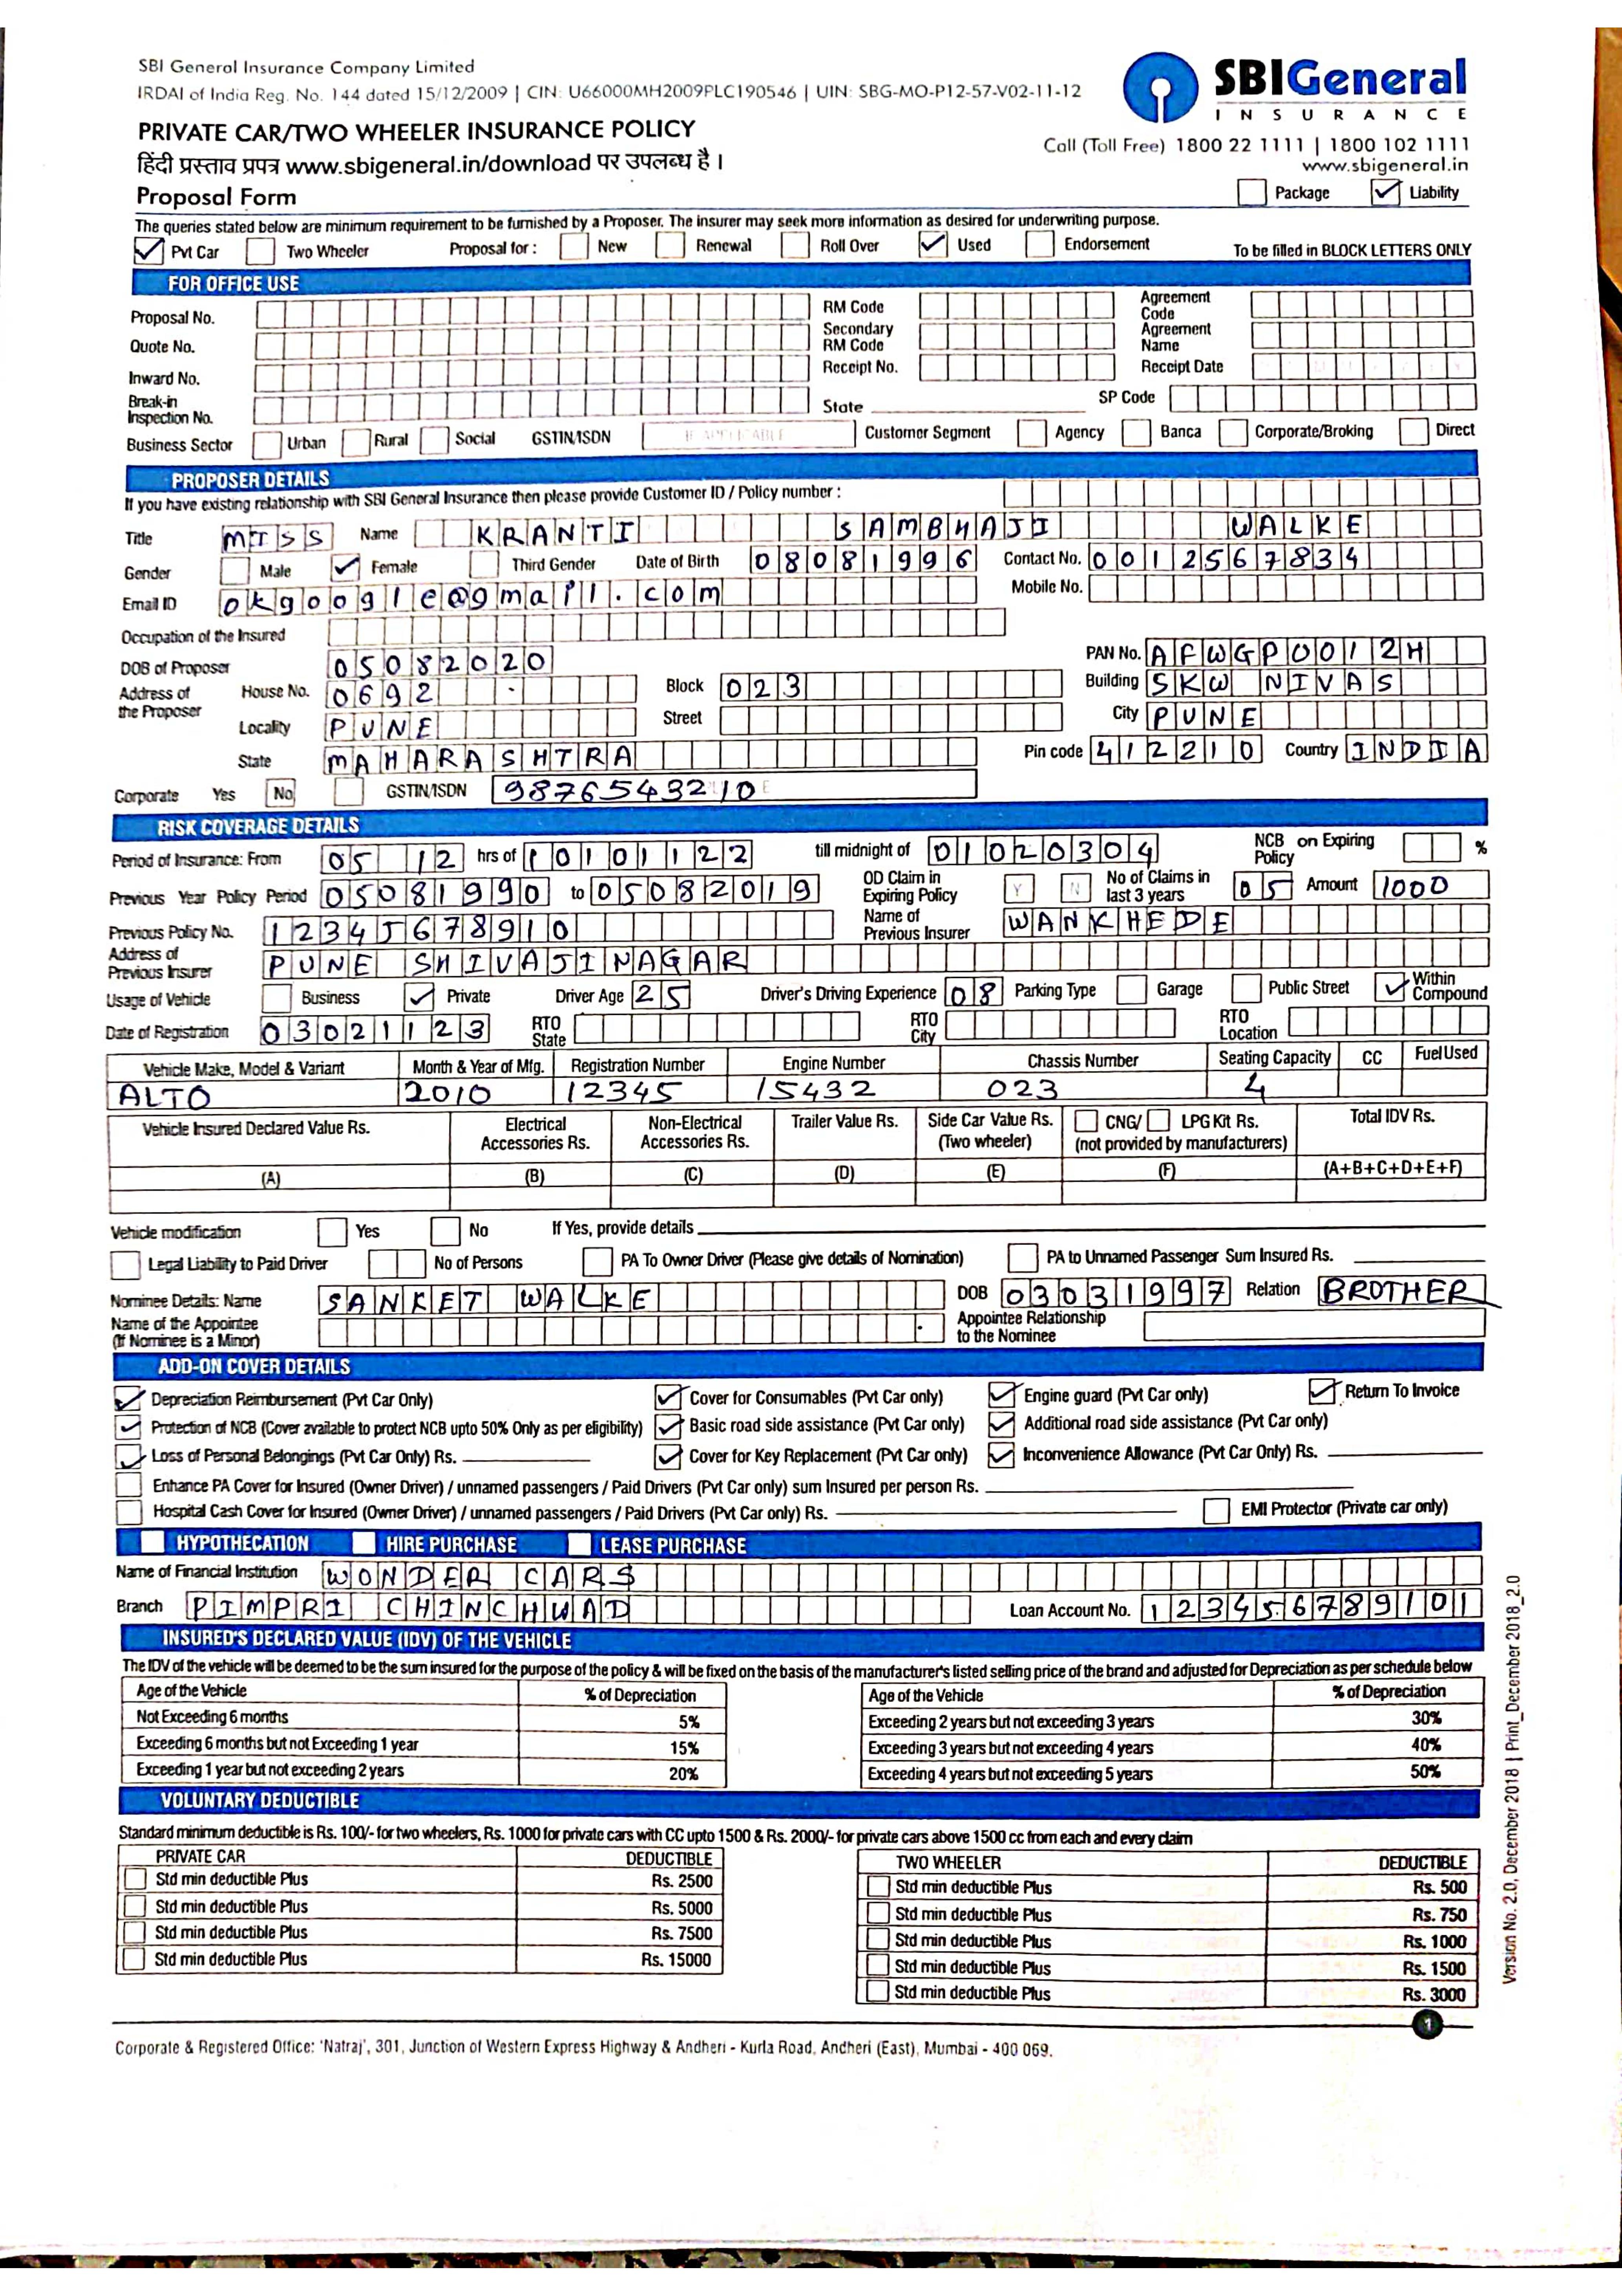 SBI General Insurance Company Limited
IRDAI of India Reg. No. 144 dated 15/12/2009 | CIN: U66000MH2009PLC190546 | UIN: SBG-MO-P12-57-V02-11-12
SBIGeneral
INSURANCE
PRIVATE CAR/TWO WHEELER INSURANCE POLICY
Call (Toll Free) 1800 22 1111 | 1800 102 1111
हिंदी प्रस्ताव प्रपत्र www.sbigeneral.in/download पर उपलब्ध है।
www.sbigeneral.in
Proposal Form
Package Liability
The queries stated below are minimum requirement to be furnished by a Proposer. The insurer may seek more information as desired for underwriting purpose.
Pvt Car Two Wheeler Proposal for: New Renewal Roll Over Used Endorsement To be filled in BLOCK LETTERS ONLY
FOR OFFICE USE
Proposal No. RM Code Agreement Code
Quote No. Secondary RM Code Agreement Name
Inward No. Receipt No. Receipt Date
Break-in Inspection No. State SP Code
Business Sector Urban Rural Social GSTIN/ISDN IF APPLICABLE Customer Segment Agency Banca Corporate/Broking Direct
PROPOSER DETAILS
If you have existing relationship with SBI General Insurance then please provide Customer ID / Policy number:
Title MISS Name KRANTI SAMBHAJI WALKE
Gender Male Female Third Gender Date of Birth 08081996 Contact No. 0012567834
Email ID okgoogle@gmail.com Mobile No.
Occupation of the Insured
DOB of Proposer 05082020 PAN No. AFWGP0012H
Address of the Proposer House No. 0692 Block 023 Building SKW NIVAS
Locality PUNE Street City PUNE
State MAHARASHTRA Pin code 412210 Country INDIA
Corporate Yes No GSTIN/ISDN 9876543210
RISK COVERAGE DETAILS
Period of Insurance: From 05 12 hrs of 10101122 till midnight of 01020304 NCB on Expiring Policy %
Previous Year Policy Period 05081990 to 05082019 OD Claim in Expiring Policy Y N No of Claims in last 3 years 05 Amount 1000
Previous Policy No. 1234J678910 Name of Previous Insurer WANKHEDE
Address of Previous Insurer PUNE SHIVAJINAGAR
Usage of Vehicle Business Private Driver Age 25 Driver's Driving Experience 08 Parking Type Garage Public Street Within Compound
Date of Registration 03021123 RTO State RTO City RTO Location
Vehicle Make, Model & Variant Month & Year of Mfg. Registration Number Engine Number Chassis Number Seating Capacity CC Fuel Used
ALTO 2010 12345 15432 023 4
Vehicle Insured Declared Value Rs. Electrical Accessories Rs. Non-Electrical Accessories Rs. Trailer Value Rs. Side Car Value Rs. (Two wheeler) CNG/ LPG Kit Rs. (not provided by manufacturers) Total IDV Rs.
(A) (B) (C) (D) (E) (F) (A+B+C+D+E+F)
Vehicle modification Yes No If Yes, provide details
Legal Liability to Paid Driver No of Persons PA To Owner Driver (Please give details of Nomination) PA to Unnamed Passenger Sum Insured Rs.
Nominee Details: Name SANKET WALKE DOB 03031997 Relation BROTHER
Name of the Appointee (If Nominee is a Minor) Appointee Relationship to the Nominee
ADD-ON COVER DETAILS
Depreciation Reimbursement (Pvt Car Only) Cover for Consumables (Pvt Car only) Engine guard (Pvt Car only) Return To Invoice
Protection of NCB (Cover available to protect NCB upto 50% Only as per eligibility) Basic road side assistance (Pvt Car only) Additional road side assistance (Pvt Car only)
Loss of Personal Belongings (Pvt Car Only) Rs. Cover for Key Replacement (Pvt Car only) Inconvenience Allowance (Pvt Car Only) Rs.
Enhance PA Cover for Insured (Owner Driver) / unnamed passengers / Paid Drivers (Pvt Car only) sum Insured per person Rs.
Hospital Cash Cover for Insured (Owner Driver) / unnamed passengers / Paid Drivers (Pvt Car only) Rs. EMI Protector (Private car only)
HYPOTHECATION HIRE PURCHASE LEASE PURCHASE
Name of Financial Institution WONDER CARS
Branch PIMPRI CHINCHWAD Loan Account No. 123456789101
INSURED'S DECLARED VALUE (IDV) OF THE VEHICLE
The IDV of the vehicle will be deemed to be the sum insured for the purpose of the policy & will be fixed on the basis of the manufacturer's listed selling price of the brand and adjusted for Depreciation as per schedule below
Age of the Vehicle % of Depreciation Age of the Vehicle % of Depreciation
Not Exceeding 6 months 5% Exceeding 2 years but not exceeding 3 years 30%
Exceeding 6 months but not Exceeding 1 year 15% Exceeding 3 years but not exceeding 4 years 40%
Exceeding 1 year but not exceeding 2 years 20% Exceeding 4 years but not exceeding 5 years 50%
VOLUNTARY DEDUCTIBLE
Standard minimum deductible is Rs. 100/- for two wheelers, Rs. 1000 for private cars with CC upto 1500 & Rs. 2000/- for private cars above 1500 cc from each and every claim
PRIVATE CAR DEDUCTIBLE TWO WHEELER DEDUCTIBLE
Std min deductible Plus Rs. 2500 Std min deductible Plus Rs. 500
Std min deductible Plus Rs. 5000 Std min deductible Plus Rs. 750
Std min deductible Plus Rs. 7500 Std min deductible Plus Rs. 1000
Std min deductible Plus Rs. 15000 Std min deductible Plus Rs. 1500
Std min deductible Plus Rs. 3000
Version No. 2.0, December 2018 | Print_December 2018_2.0
1
Corporate & Registered Office: 'Natraj', 301, Junction of Western Express Highway & Andheri - Kurla Road, Andheri (East), Mumbai - 400 069.